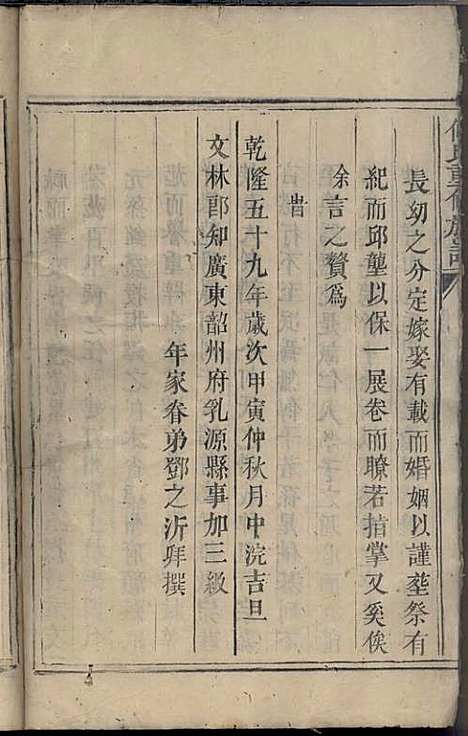 長幼之分定嫁娶有載而婚姻以謹塟祭有
紀而邱壟以保一展卷而瞭若指掌又奚俟
余言之贅爲
旹
乾隆五十九年歲次甲寅仲秋月中浣吉旦
文林郎知廣東韶州府乳源縣事加三級
年家眷弟鄧之沂拜撰